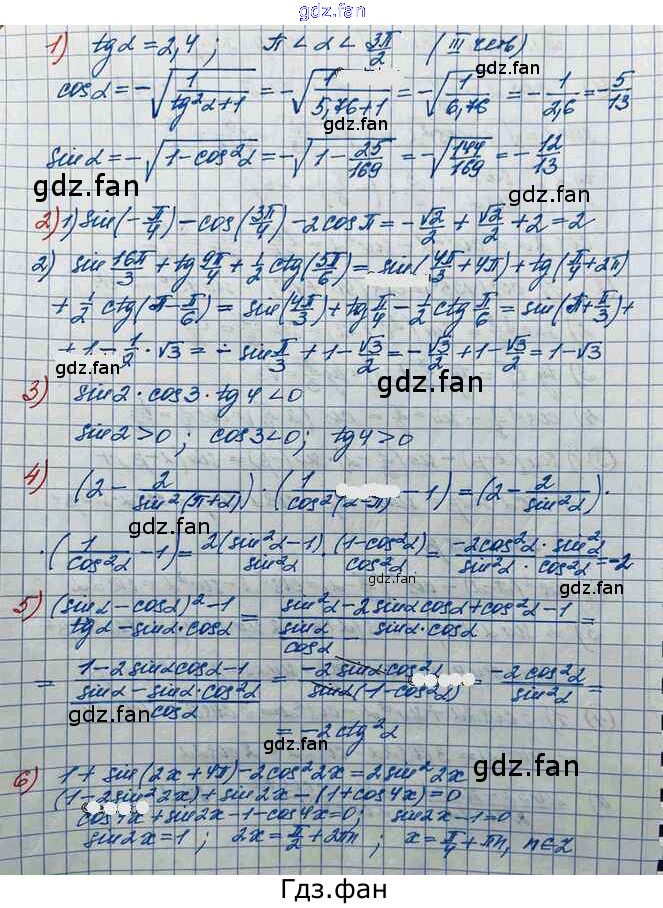 gdz.fan
gdz.fan
1) tgα = 2,4 ; π < α < 3π/2 (III четв)
cosα = -√(1/(tg²α+1)) = -√(1/(5,76+1)) = -√(1/6,76) = -1/2,6 = -5/13
gdz.fan
sinα = -√(1-cos²α) = -√(1-25/169) = -√(144/169) = -12/13
gdz.fan gdz.fan
2) 1) sin(-π/4) - cos(3π/4) - 2cosπ = -√2/2 + √2/2 + 2 = 2
2) sin 16π/3 + tg 9π/4 + 1/2 ctg(5π/6) = sin(4π/3 + 4π) + tg(π/4 + 2π)
+ 1/2 ctg(π - π/6) = sin(4π/3) + tg π/4 - 1/2 ctg π/6 = sin(π + π/3) +
+ 1 - 1/2 · √3 = - sin π/3 + 1 - √3/2 = - √3/2 + 1 - √3/2 = 1 - √3
gdz.fan gdz.fan
3) sin2 · cos3 · tg4 < 0
gdz.fan
sin2 > 0 ; cos3 < 0 ; tg4 > 0
4) (2 - 2/sin²(π+α)) · (1/cos²(α-π) - 1) = (2 - 2/sin²α) ·
gdz.fan gdz.fan
· (1/cos²α - 1) = 2(sin²α - 1)/sin²α · (1-cos²α)/cos²α = -2cos²α · sin²α/sin²α · cos²α = -2
gdz.fan gdz.fan
5) (sinα - cosα)² - 1/tgα - sinα·cosα = sin²α - 2sinαcosα + cos²α - 1/(sinα/cosα - sinα·cosα) =
gdz.fan
= 1 - 2sinαcosα - 1/((sinα - sinα·cos²α)/cosα) = -2sinαcos²α/sinα(1-cos²α) = -2cos²α/sin²α =
gdz.fan gdz.fan
= -2ctg²α
6) 1 + sin(2x + 4π) - 2cos²2x = 2sin²2x
gdz.fan
(1 - 2sin²2x) + sin2x - (1 + cos4x) = 0
cos4x + sin2x - 1 - cos4x = 0 ; sin2x - 1 = 0
gdz.fan
sin2x = 1 ; 2x = π/2 + 2πn ; x = π/4 + πn, n∈Z
Гдз.фан